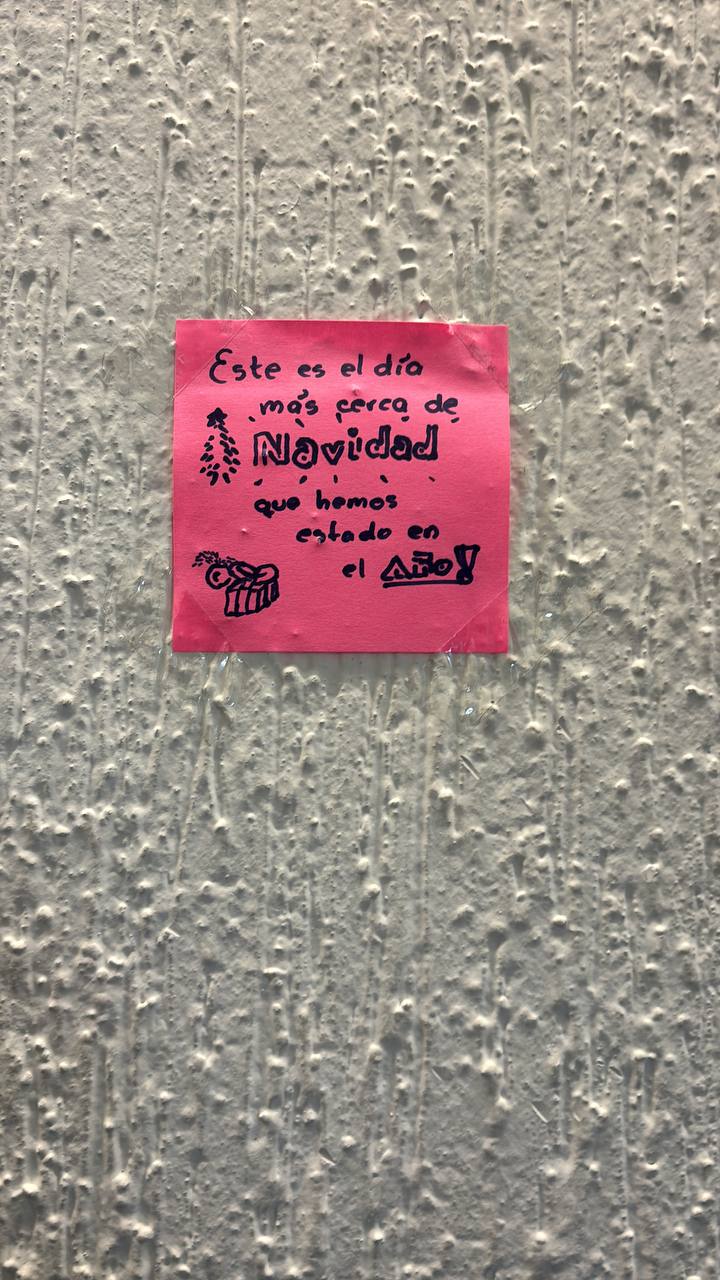 Este es el día
más cerca de
Navidad
que hemos
estado en
el Año!